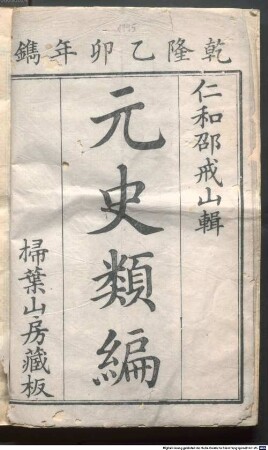 乾隆乙卯年鐫
仁和邵戒山輯
元史類編
掃葉山房藏板